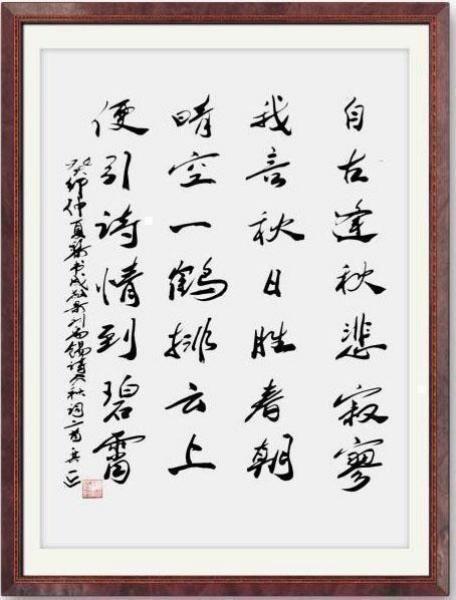 自古逢秋悲寂寥
我言秋日胜春朝
晴空一鹤排云上
便引诗情到碧霄
癸卯仲夏 书 刘禹锡诗 秋词一首